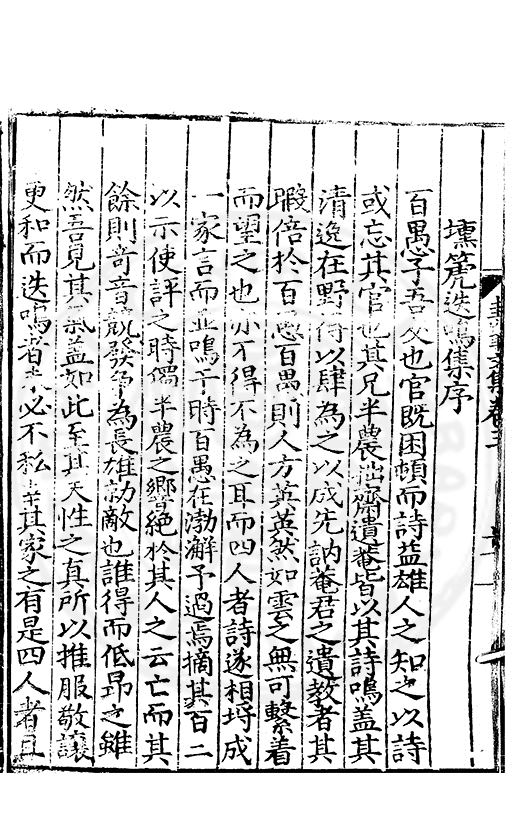 壎篪迭鳴集序
百愚子吾友也官既困頓而詩益雄人之知之以詩
或忘其官也其兄半農拙齋遺菴皆以其詩鳴盖其
清逸在野得以肆為之以成先訥菴君之遺教者其
暇倍於百愚百愚則人方英英然如雲之無可繫着
而望之也亦不得不為之耳而四人者詩遂相埓成
一家言而並鳴于時百愚在渤澥予過焉摘其百二
以示使評之時獨半農之響絶於其人之云亡而其
餘則奇音競發爭為長雄勍敵也誰得而低昂之雖
然吾見其氣盖如此至其天性之真所以推服敬讓
更和而迭鳴者未必不私幸其家之有是四人者且